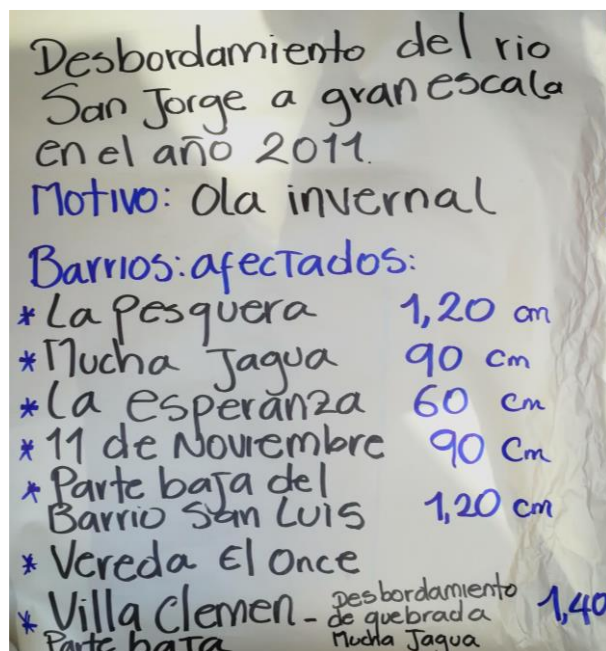 Desbordamiento del rio
San Jorge a gran escala
en el año 2011.
Motivo: Ola invernal
Barrios: afectados:
* La Pesquera 1,20 cm
* Mucha Jagua 90 cm
* La esperanza 60 cm
* 11 de Noviembre 90 cm
* Parte baja del
Barrio San Luis 1,20 cm
* Vereda El Once
* Villa Clemen - Desbordamiento 1,40
de quebrada
Parte baja Mucha Jagua